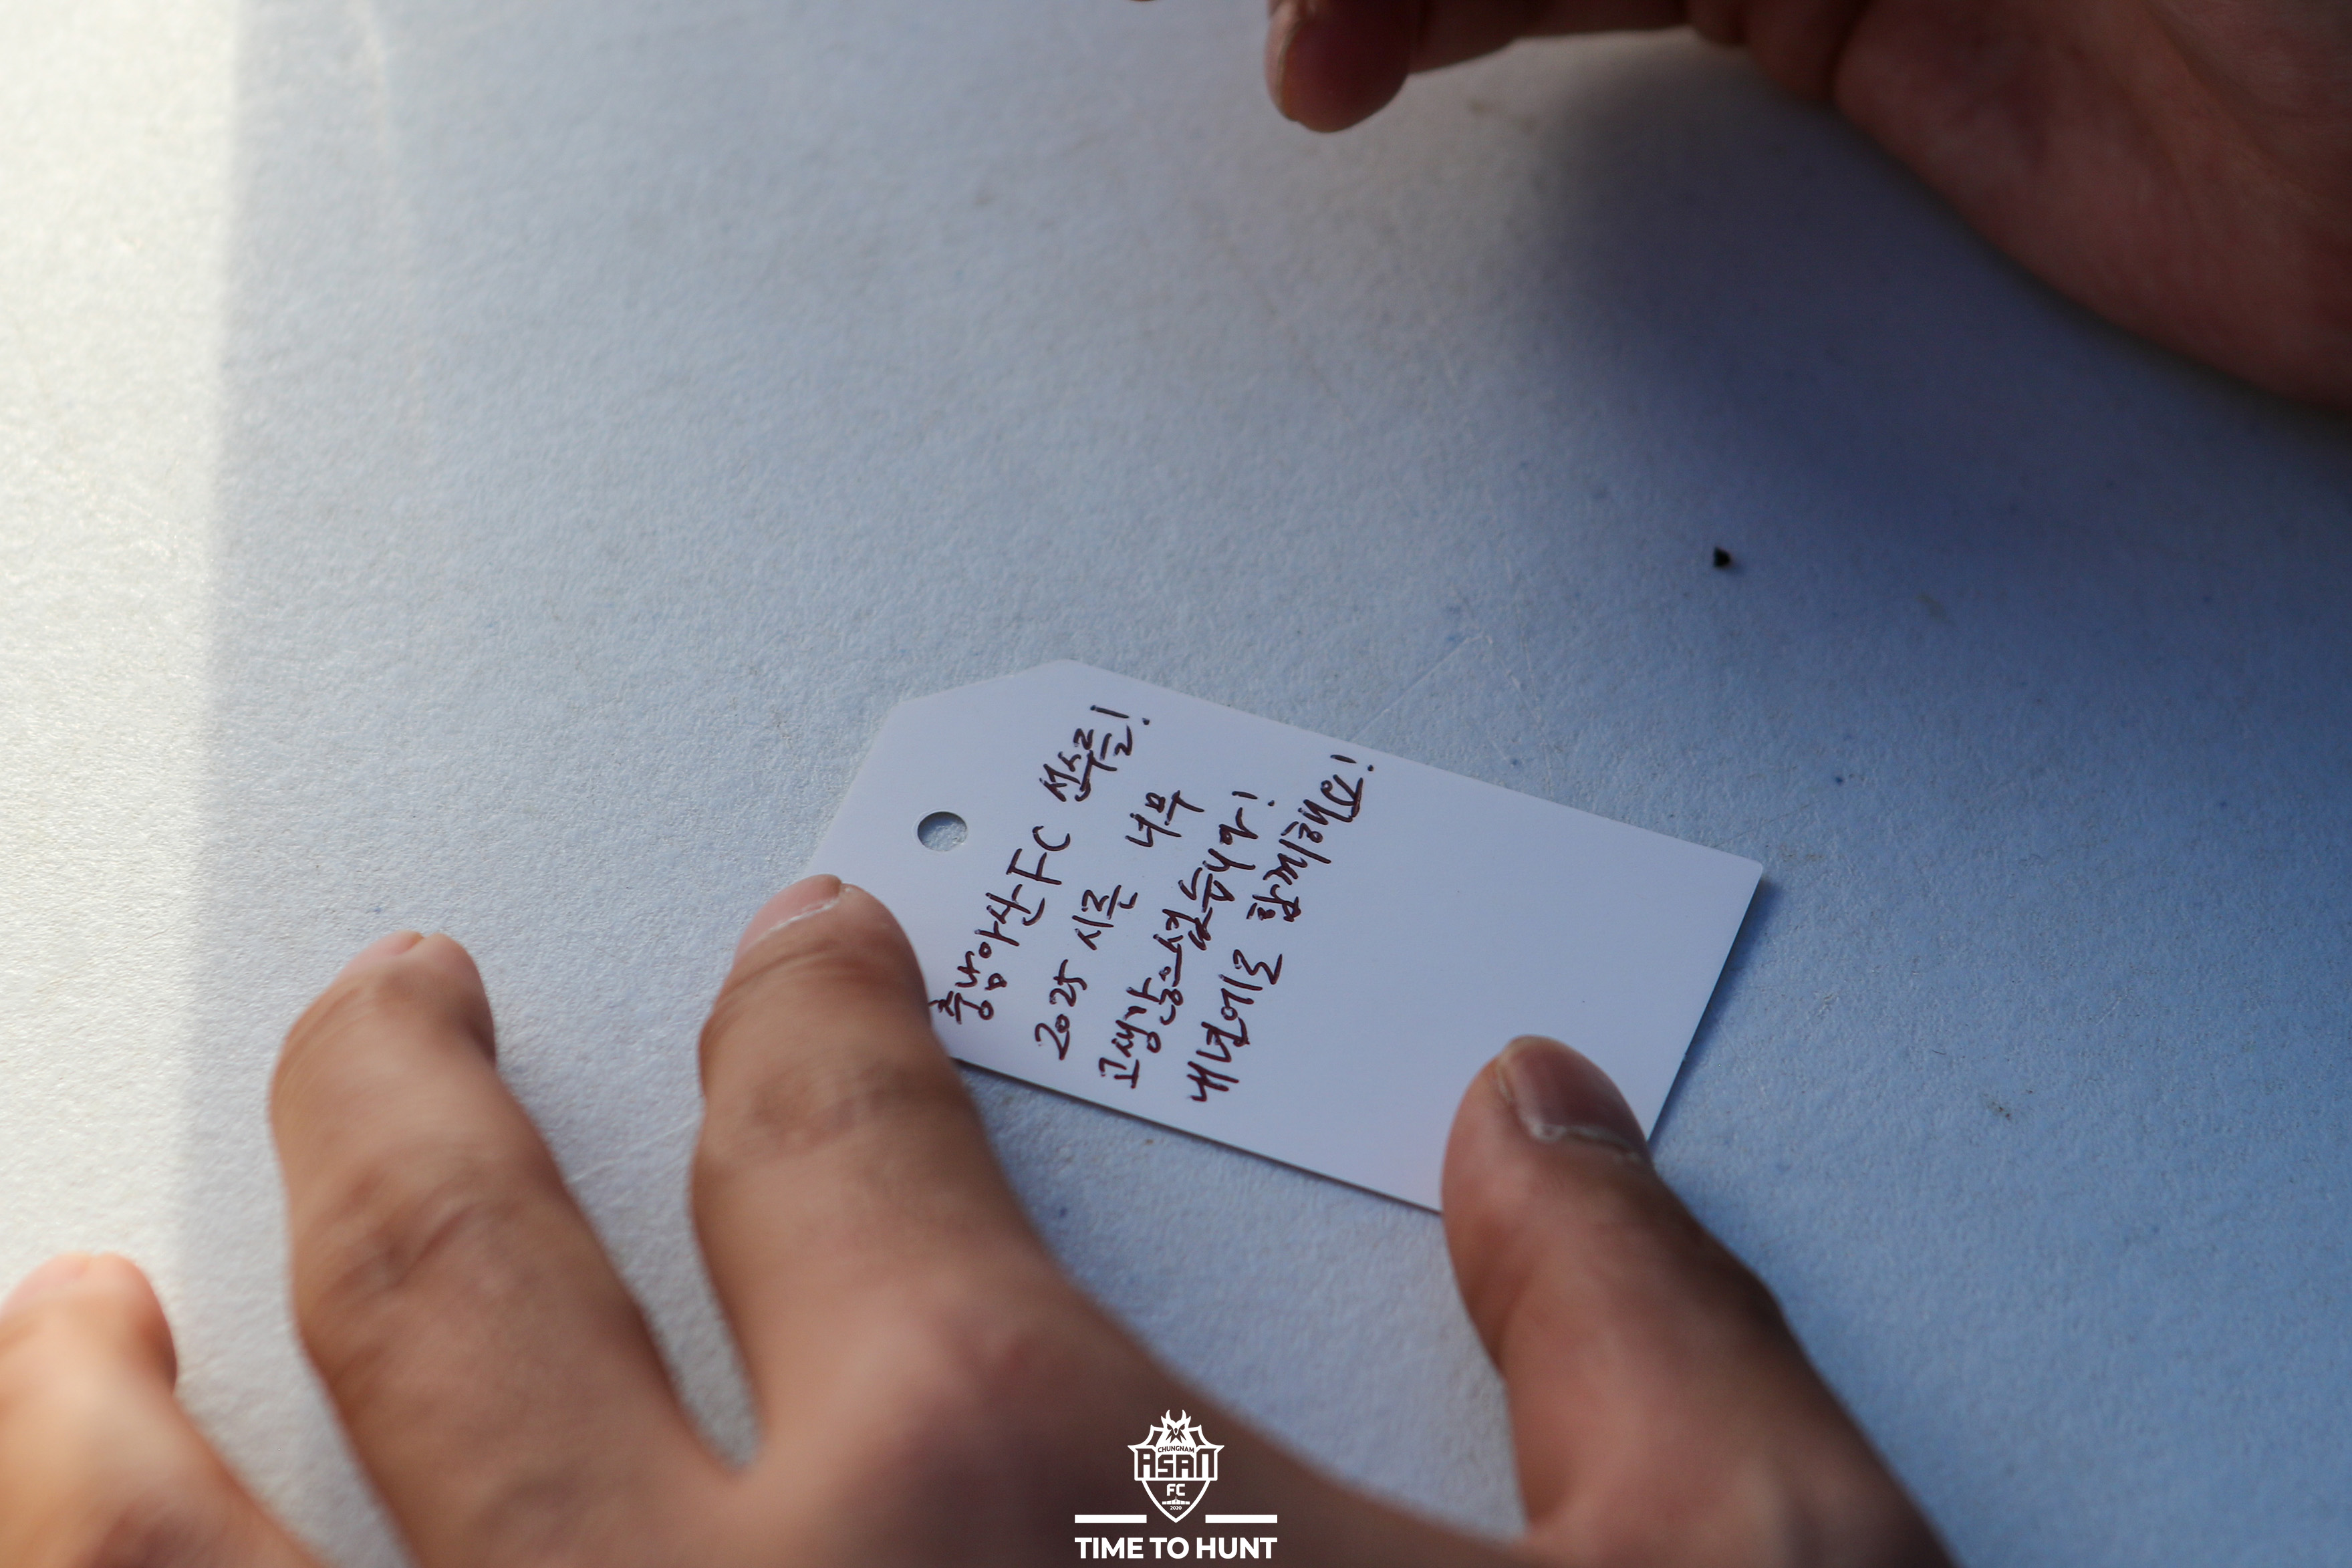 충남아산FC 선수들!
2025 시즌 너무
고생많으셨습니다!
내년에도 함께해요!
CHUNGNAM
ASAN
FC
2020
TIME TO HUNT